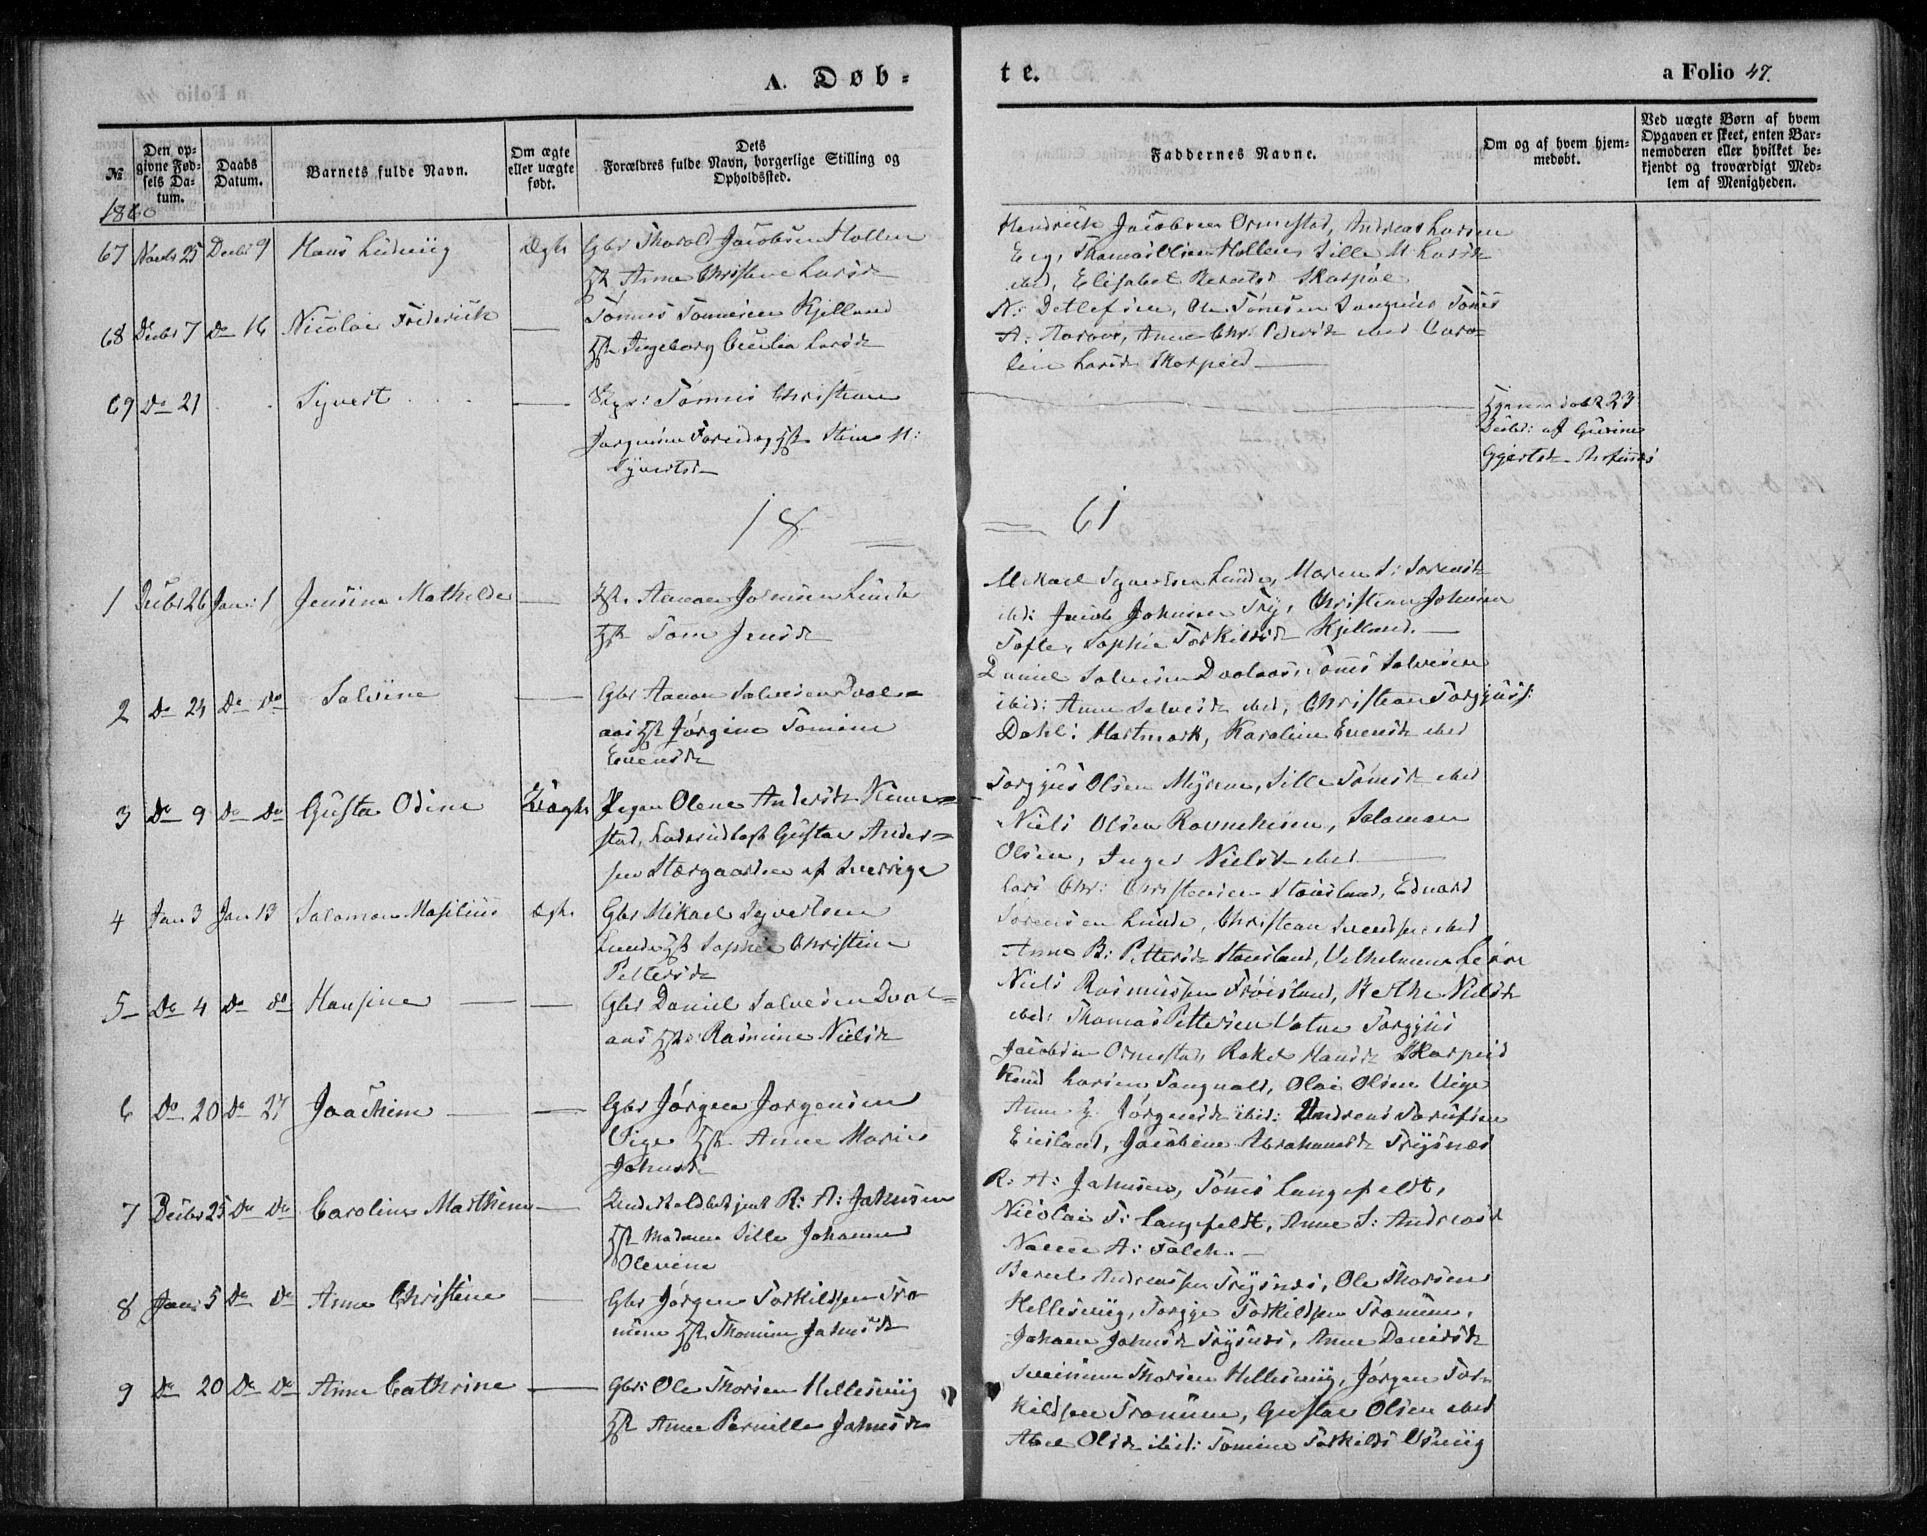 A. Døb-
te.
a Folio 47.
No
Den op-
givne Fød-
sels Da-
tum.
Daabs
Datum.
Barnets fulde Navn.
Om ægte
eller uægte
født.
Dets
Forældres fulde Navn, borgerlige Stilling og
Opholdssted.
Faddernes Navne.
Om og af hvem hjem-
medøbt.
Ved uægte Børn af hvem
Opgaven er skeet, enten Bar-
nemoderen eller hvilket be-
kjendt og troværdigt Med-
lem af Menigheden.
1860
67 Novbr 25 Decbr 9 Hans Ludvig Ægte Gbr Thorald Jacobsen Hollen
Hst Anne Christine Larsd
Hendrick Jacobsen Ormestad, Andreas Larsen
Eeg, Thomas Olsen Hollen, Sille M Larsd
ibid, Elisabet Berntsd Skarpøe
68 Decbr 7 Do 16 Nicolai Friderich — Tønnes Tønnesen Kjelland
Hst Ingeborg Cecilia Larsd
N: Detlefsen, Ole Tønesen Tangvald Tønes
A: Aaros, Anne Chr: Pedersd ibid Caro-
line Larsd Skarpeid —
69 Do 21 Syvert — Tønnes Christian
Jørgensen Hst Stine M:
Syvertsd
Hjemmedøbt 23
Decbr: af Gurine
Ejertsd
18 61
1 Decbr 26 Jan: 1 Jensine Mathilde — Aanon Jørensen Lunde
Hst Tone Jensd
Mikael Syvertsen Lunde, Maren S: Sørensd
ibid: Jacob Johnsen Try, Christian Johnsen
Tofte, Sophie Torkildsd Kjelland. —
2 Do 24 Do Do Salvine — Gbr Aanon Salvesen Dval-
aas Hst Jørgine Tomine
Evensd
Daniel Salvesen Dvalaas, Tønes Salvesen
ibid: Anne Salvesd ibid, Christian Torgjuss:
Dahl: Hartmark, Karoline Evensd ibid
3 Do 9 Do Do Gusta Odine Uægte Pigen Olene Andersd Kime-
stad, Gustav Ander-
sen Stærgaarden af Sverrige
Torgjus Olsen Myrene, Sille Tønesd ibid
Niels Olsen Ravneheien, Salomon
Olsen, Inger Nielsd ibid —
4 Jan 3 Jan 13 Salomon Masilius ægte Gbr Mikael Syvertsen
Lunde Hst Sophie Christine
Pettersd
Lars Chr: Christensen Stousland, Eduard
Sørensen Lunde, Christian Svendsen ibid
Anne B: Pettersd Stousland, Vilhelmine
5 Do 4 Do do Hansine — Gbr Daniel Salvesen Dval-
aas Hst: Rasmine Nielsd
Niels Rasmussen Frøisland, Berthe Nielsd
ibid: Thomas Pettersen Vatne Torgjus
Jacobsen Ormestad, Rakel Hansd Skarpeid
6 Do 20 Do 27 Joachim — Gbr Jørgen Jørgensen
Vige Hst Anne Marie
Johnsd
Knud Larsen Tangvald, Olai Olsen Vige
Anne G. Jørgensd ibid: Andreas
Eiesland, Jacobine Abrahamsd Trysnæs
7 Decbr 25 Do Do Caroline Marthine — Underholdbetjent R: A: Johnsen
Hst Madame Sille Johanne
Olevine
R: A: Johnsen, Tønes Langefeldt,
Nicolai T: Langfeldt, Anne S: Andreasd
A: Falch. —
8 Jan: 5 Do Do Anne Christine — Gbr Jørgen Torkildsen Tro-
mene Hst Thomine Johnsd
Bernt Andreassen Trysnæs, Ole Thorsen
Hellesviig, Torgje Torkildsen Tromene,
Johan Johnsd Trysnæs, Anne Danielsd
9 Do 20 Do Do Anne Cathrine — Gbr: Ole Thorsen Hellesviig
Hst Anne Pernille Johnsd
Sveinung Thorsen Hellesviig, Jørgen Tor-
kildsen Tromene, Gustav Olsen ibid
Abel Olsd ibid: Tomine Torkilds